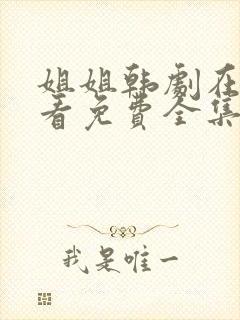 姐姐韩剧在
看免费全集
我是唯一